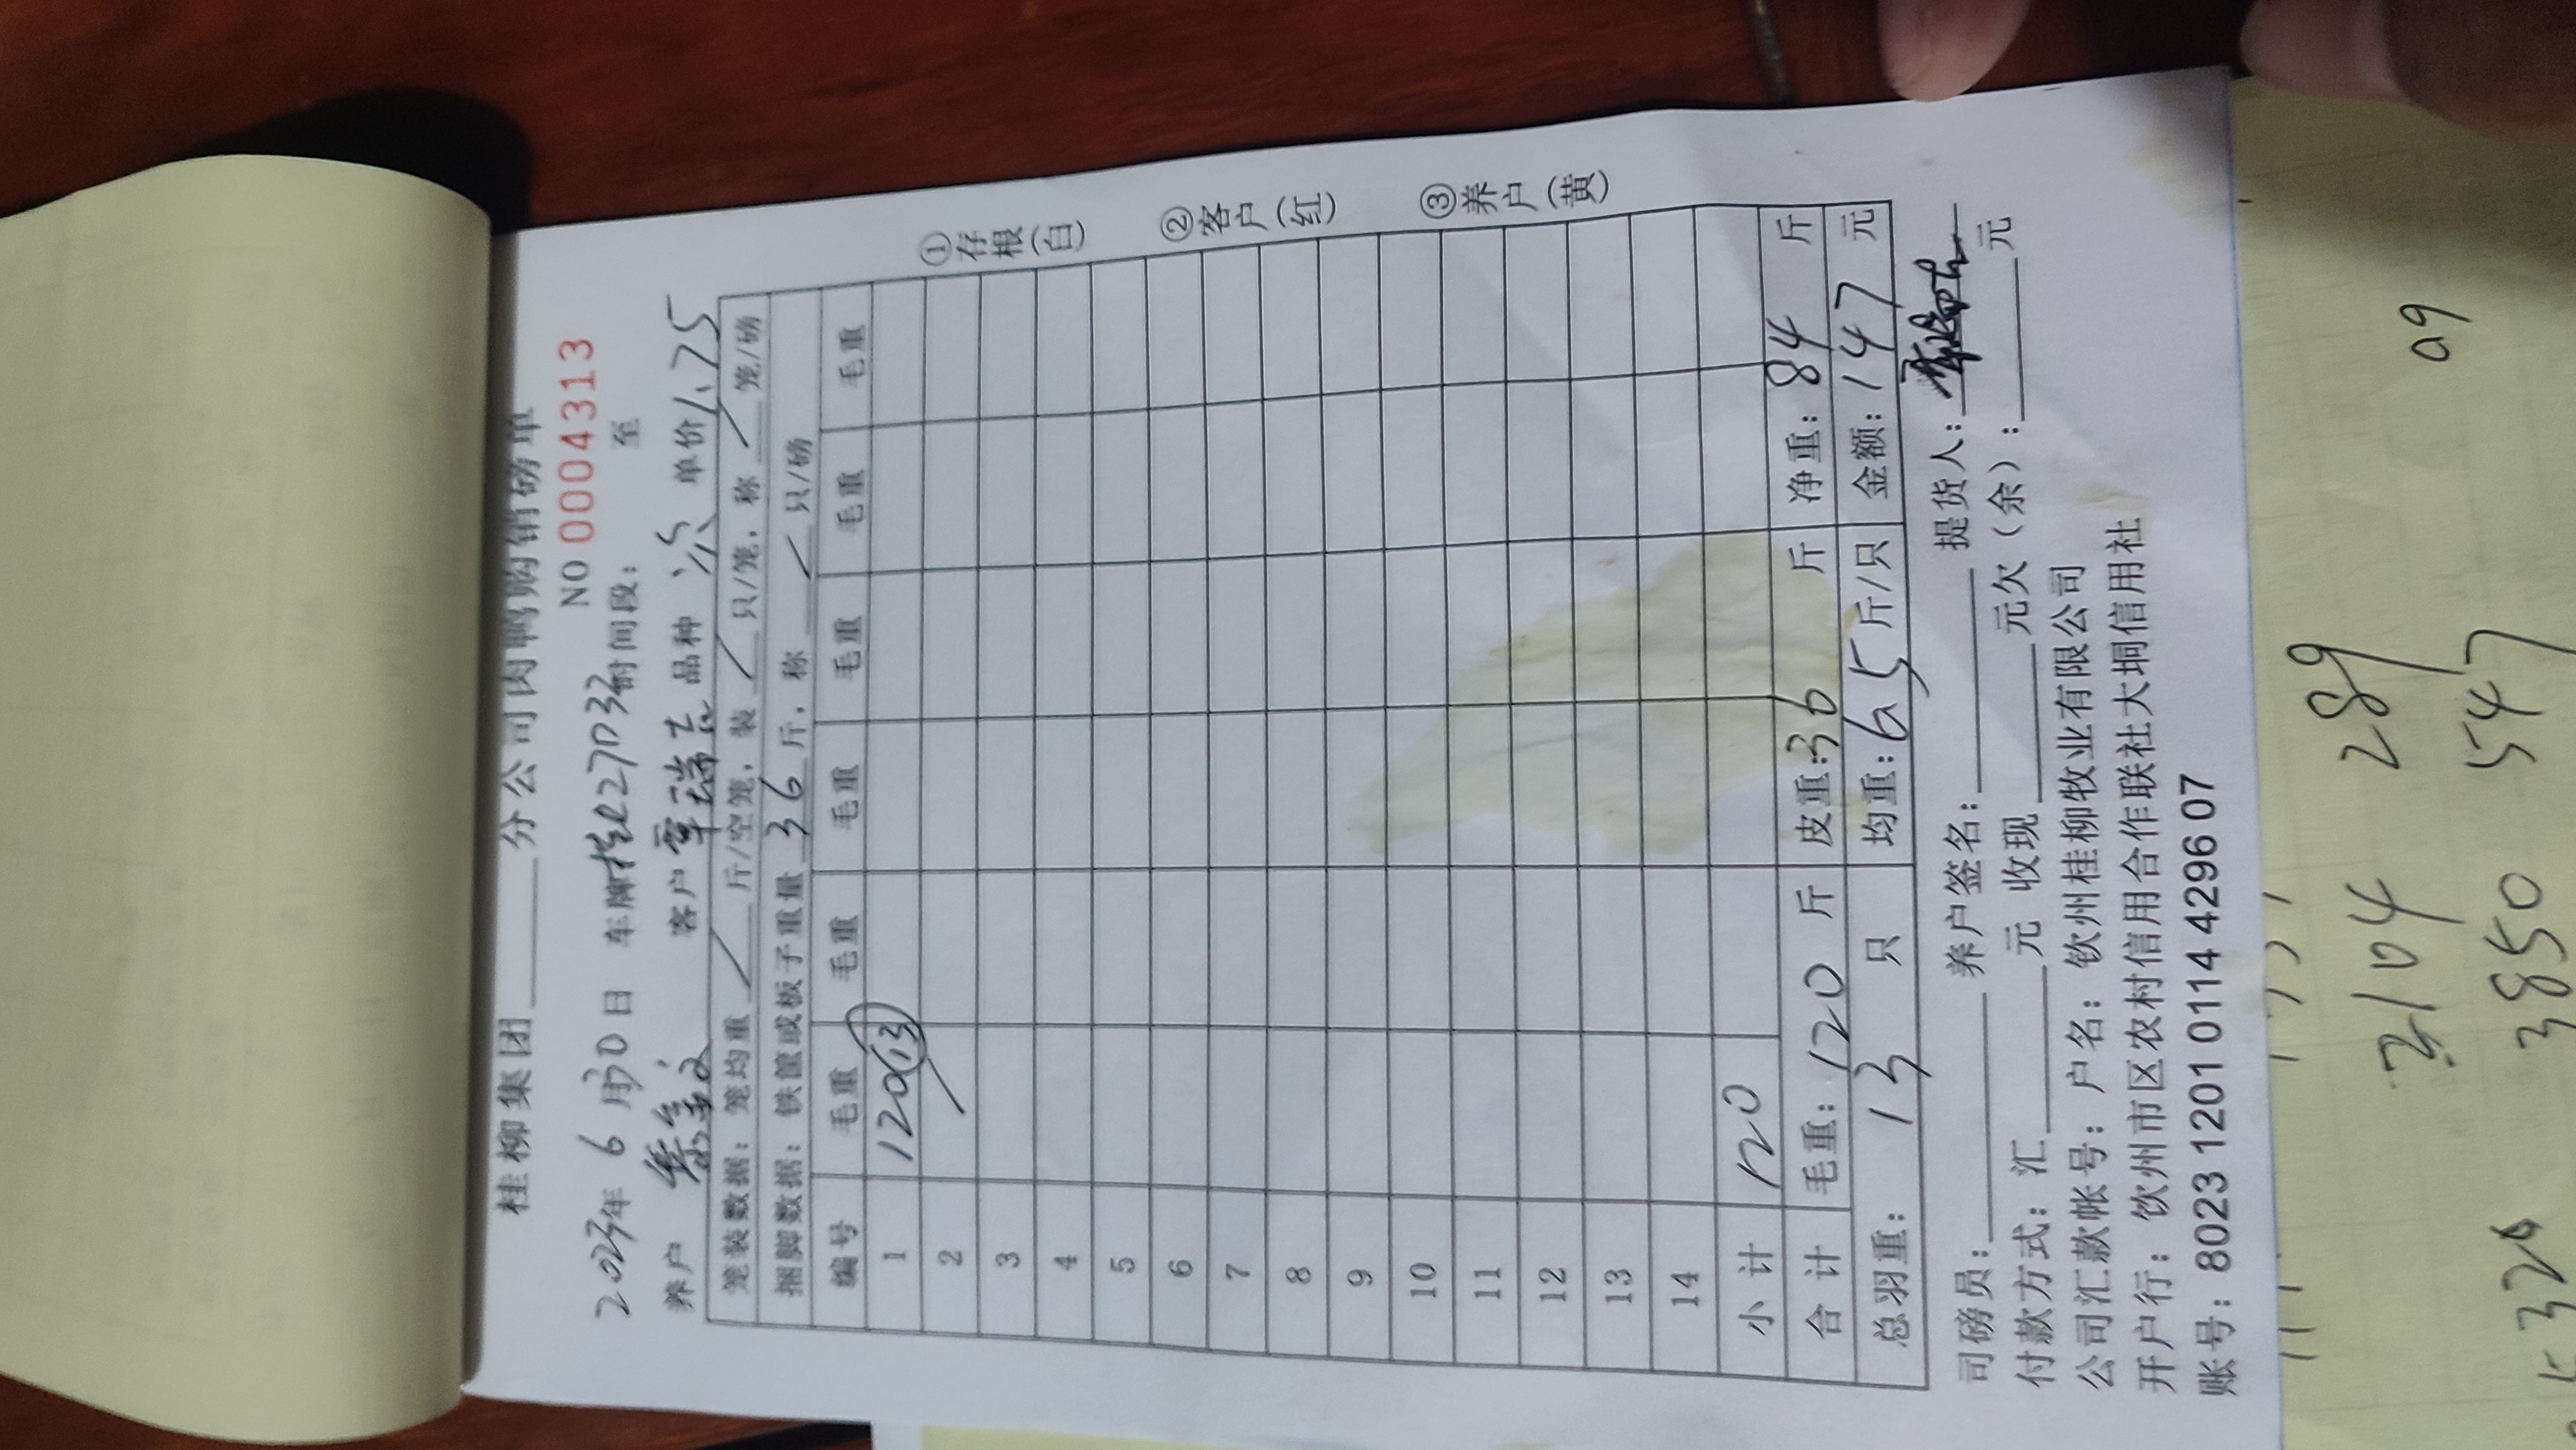 桂柳集团____分公司肉鸭购销磅单
NO 0004313
2023年 6 月30日 车牌桂E27D32时间段: 至
养户 客户 覃瑞志 品种 次 单价1.75
笼装数据: 笼均重 / 斤/空笼, 装 / 只/笼, 称 / 笼/磅
捆脚数据: 铁筐或板子重量 36 斤, 称 / 只/磅
编号 毛重 毛重 毛重 毛重 毛重 毛重
1 120(13)
2
3
4
5
6
7
8
9
10
11
12
13
14
小计 120
合计 毛重: 120 斤 皮重: 36 斤 净重: 84 斤
总羽重: 13 只 均重: 6.5 斤/只 金额: 147 元
司磅员:____ 养户签名:____ 提货人:
付款方式: 汇____元 收现____元欠(余):____元
公司汇款帐号: 户名: 钦州桂柳牧业有限公司
开户行: 钦州市区农村信用合作联社大垌信用社
账号: 8023 1201 0114 4296 07
①存根(白) ②客户(红) ③养户(黄)
104 289
3850 547